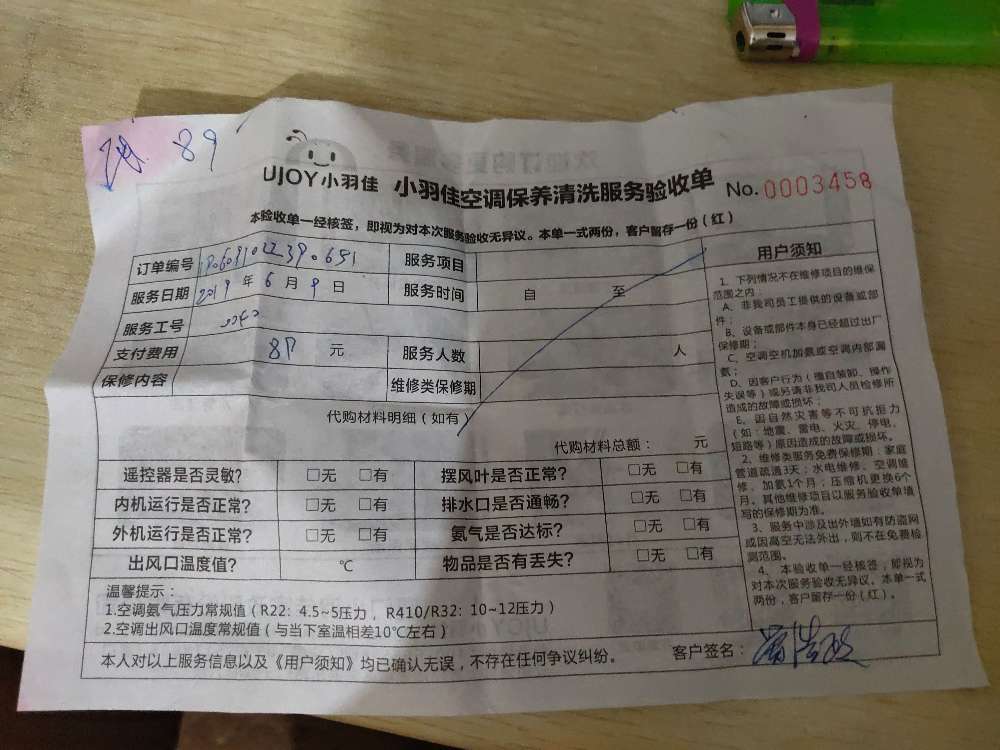 89
UJOY小羽佳 小羽佳空调保养清洗服务验收单 No.0003458
本验收单一经核签，即视为对本次服务验收无异议。本单一式两份，客户留存一份（红）
订单编号 服务项目
服务日期 2019 年 6 月 9 日 服务时间 自 至
服务工号
支付费用 89 元 服务人数 人
保修内容 维修类保修期
代购材料明细（如有）
代购材料总额： 元
遥控器是否灵敏？ □无 □有 摆风叶是否正常？ □无 □有
内机运行是否正常？ □无 □有 排水口是否通畅？ □无 □有
外机运行是否正常？ □无 □有 氨气是否达标？ □无 □有
出风口温度值？ ℃ 物品是否有丢失？ □无 □有
温馨提示：
1.空调氨气压力常规值（R22：4.5~5压力，R410/R32：10~12压力）
2.空调出风口温度常规值（与当下室温相差10℃左右）
本人对以上服务信息以及《用户须知》均已确认无误，不存在任何争议纠纷。 客户签名：
用户须知
1、下列情况不在维修项目的维保
范围之内：
A、非我司员工提供的设备或部
件；
B、设备或部件本身已经超过出厂
保修期；
C、空调空机加氨或空调内部漏
氨；
D、因客户行为（擅自装卸、操作
失误等）或另请非我司人员检修所
造成的故障或损坏；
E、因自然灾害等不可抗拒力
（如：地震、雷电、火灾、停电、
短路等）原因造成的故障或损坏。
2、维修类服务免费保修期：家庭
管道疏通3天；水电维修、空调维
修、加氨1个月；压缩机更换6个
月。其他维修项目以服务验收单填
写的保修期为准。
3、服务中涉及出外墙如有防盗网
或因高空无法外出，则不在免费检
测范围。
4、本验收单一经核签，即视为
对本次服务验收无异议。本单一式
两份，客户留存一份（红）。